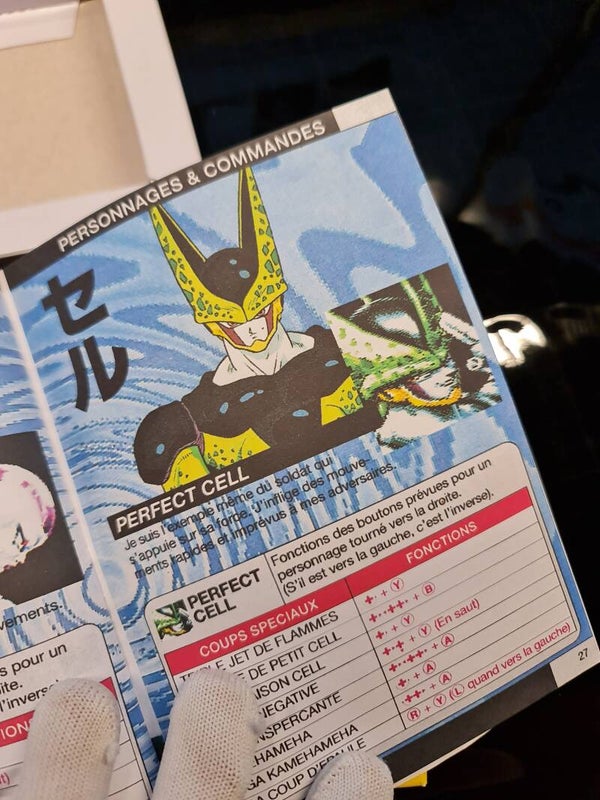 PERSONNAGES & COMMANDES
セル
PERFECT CELL
Je suis l'exemple même du soldat qui
s'appuie sur sa force. J'inflige des mouve-
ments rapides et imprévus à mes adversaires.
PERFECT
CELL
Fonctions des boutons prévues pour un
personnage tourné vers la droite.
(S'il est vers la gauche, c'est l'inverse).
COUPS SPECIAUX
FONCTIONS
JET DE FLAMMES
+ Y
DE PETIT CELL
+ B
CELL
+ Y
+ Y (En saut)
+ A
+ A
KAMEHAMEHA
+ A
COUP D'EPAULE
R + Y (L quand vers la gauche)
27
vements.
s pour un
ite.